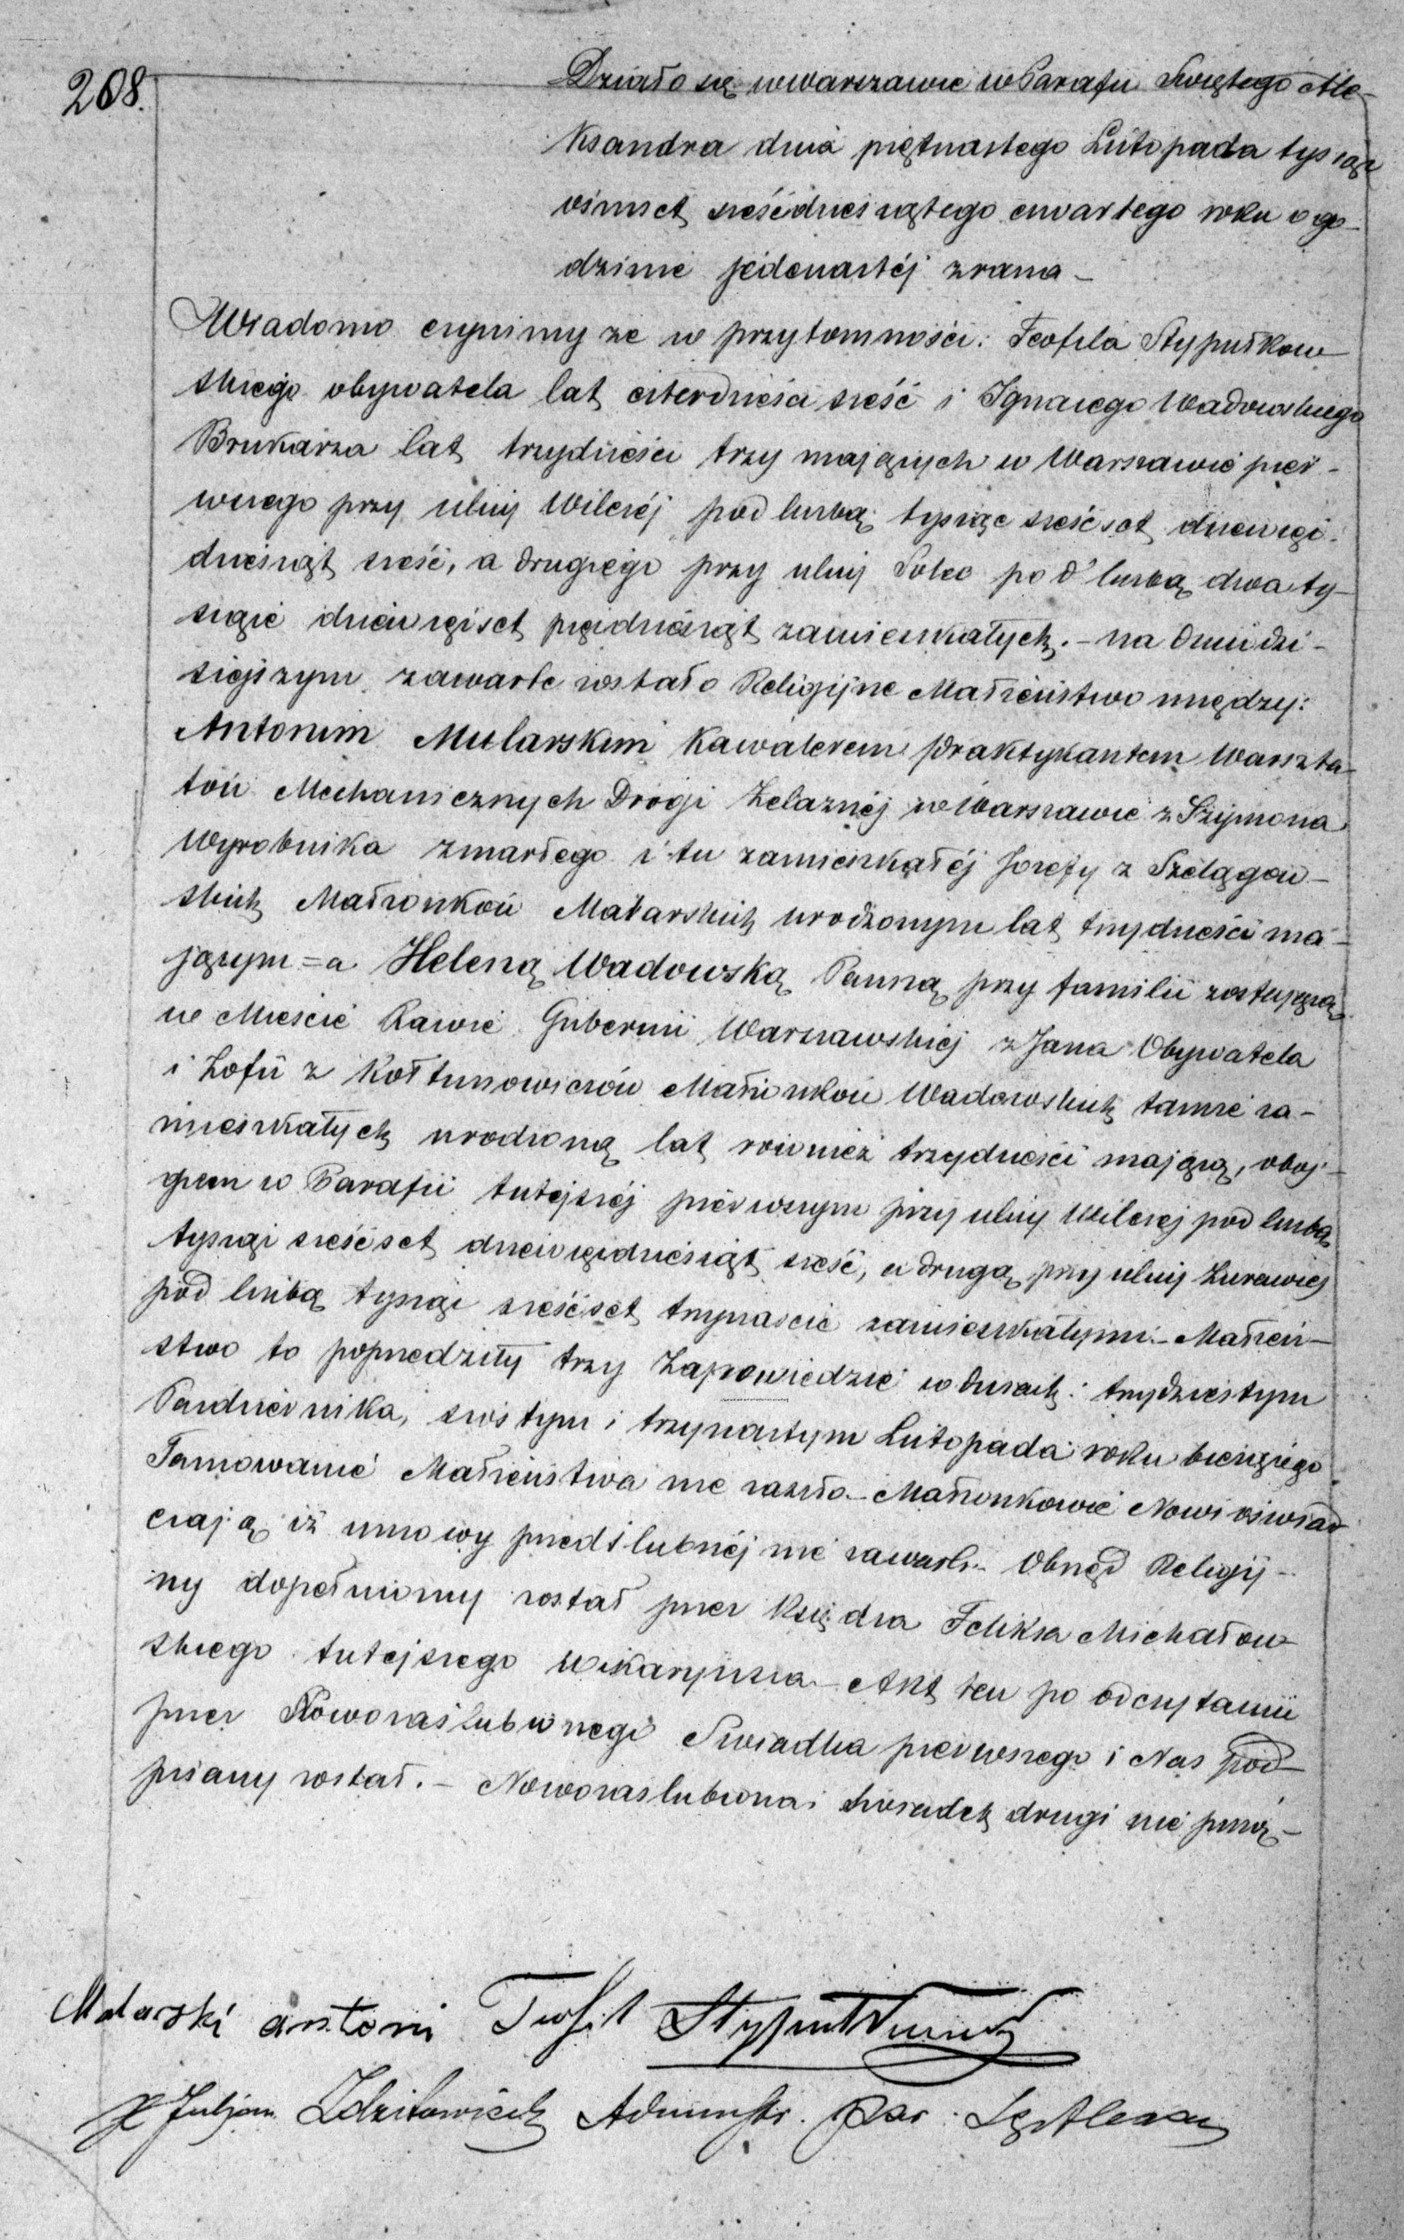 208.
Działo się w Warszawie w Parafii Świętego Ale-
ksandra dnia piętnastego Listopada tysiąc
ośmset sześćdziesiątego czwartego roku o go-
dzinie jedenastéj zrana –
Wiadomo czynimy że w przytomności: Teofila Stypułkow-
skiego obywatela lat czterdzieści sześć i Ignacego Wadowskiego
Brukarza lat trzydzieści trzy mających w Warszawie pier-
wszego przy ulicy Wilczéj pod liczbą tysiąc sześćset dziewięć-
dziesiąt sześć, a drugiego przy ulicy Solec pod liczbą dwa ty-
siące dziewięćset pięćdziesiąt zamieszkałych. – na dniu dzi-
siejszym zawarte zostało Religijne Małżeństwo między:
Antonim Mularskim Kawalerem praktykantem Warszta-
tów Mechanicznych Drogi Żelaznéj w Warszawie z Szymona
Wyrobnika zmarłego i tu zamieszkałéj Józefy z Szelągow-
skich Małżonków Malarskich urodzonym lat trzydzieści ma-
jącym = a Heleną Wadowską Panną przy familii zostającą
w Mieście Rawie Gubernii Warszawskiéj z Jana Obywatela
i Zofii z Kołtunowiczów Małżonków Wadowskich tamże za-
mieszkałych urodzoną lat również trzydzieści mającą, oboj-
giem w Parafii tutejszéj pierwszym przy ulicy Wilczej pod liczbą
tysiąc sześćset dziewięćdziesiąt sześć, a drugą przy ulicy Żurawiej
pod liczbą tysiąc sześćset trzynaście zamieszkałymi. – Małżeń-
stwo to poprzedziły trzy Zapowiedzie w dniach: trzydziestym
Października, szóstym i trzynastym Listopada roku bieżącego.
Tamowanie Małżeństwa nie zaszło. – Małżonkowie Nowi oświad-
czają iż umowy przedślubnéj nie zawarli. – Obrzęd Religij-
ny dopełniony został przez Księdza Felixa Michałow-
skiego tutejszego Wikaryusza. – Akt ten po odczytaniu
przez Nowozaślubionego Świadka pierwszego i Nas pod-
pisany został. – Nowozaślubiona i świadek drugi nie piszą –
Malarski antoni Teofil Stypułkowski
X Juljan Zdzitowiecki Administr. Par. Sg Alexan